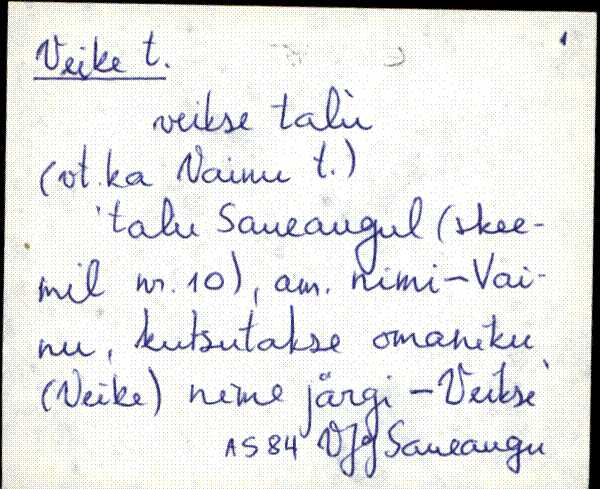 Veike t.
veikse talù
(vt. ka Vainu t.)
'talu Saueaugul (skee-
mil nr. 10), am. nimi – Vai-
nu, kutsutakse omaniku
(Veike) nime järgi – Veikse'
AS 84 VJg Saueaugu